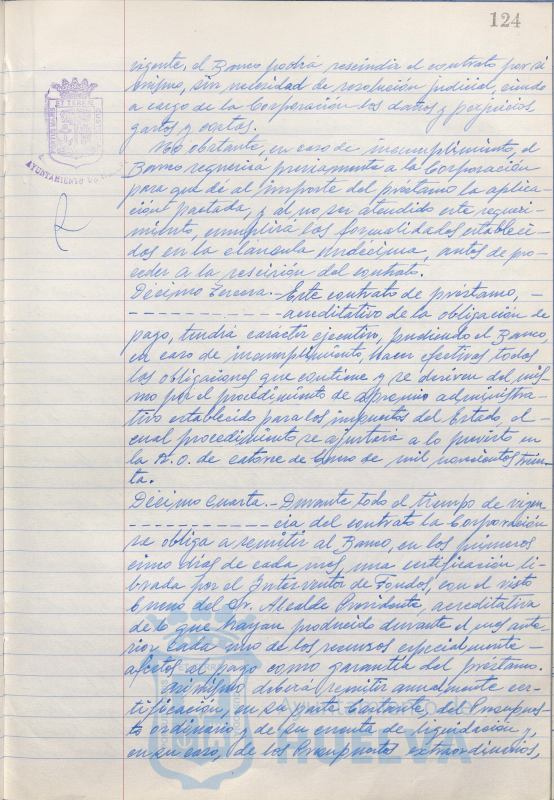 124
vigente, el Banco podrá rescindir el contrato por sí
mismo, sin necesidad de resolución judicial, siendo
a cargo de la Corporación los daños y perjuicios
gastos y costas.
No obstante, en caso de incumplimiento, el
Banco requerirá previamente a la Corporación
para que dé al importe del préstamo la aplica-
ción pactada, y al no ser atendido este requeri-
miento, cumplirá las formalidades estableci-
das en la cláusula undécima, antes de pro-
ceder a la rescisión del contrato.
Décimo Tercera.- Este contrato de préstamo, -
- - - - - - - - - - - acreditativo de la obligación de
pago, tendrá carácter ejecutivo, pudiendo el Banco,
en caso de incumplimiento, hacer efectivas todas
las obligaciones que contiene y se deriven del mis-
mo por el procedimiento de apremio administra-
tivo establecido para los impuestos del Estado, el
cual procedimiento se ajustará a lo previsto en
la R. O. de catorce de Enero de mil novecientos trein-
ta.
Décimo cuarta.- Durante todo el tiempo de vigen-
- - - - - - - - - - - cia del contrato la Corporación
se obliga a remitir al Banco, en los primeros
cinco días de cada mes, una certificación li-
brada por el Interventor de Fondos, con el visto
bueno del Sr. Alcalde Presidente, acreditativa
de lo que hayan producido durante el mes ante-
rior cada uno de los recursos especialmente -
afectos al pago como garantía del préstamo.
Asimismo deberá remitir anualmente cer-
tificación, en su parte bastante del Presupues-
to ordinario y de su cuenta de liquidación y,
en su caso, de los Presupuestos extraordinarios,
AYUNTAMIENTO DE
HUELVA